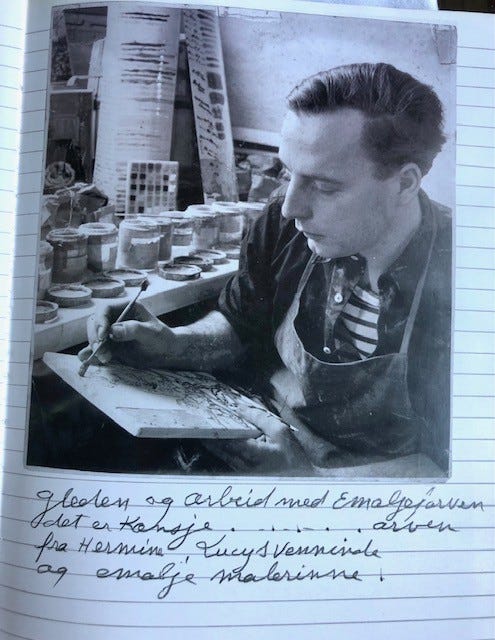 gleden og arbeid med Emaljefarven
det er Kansje . . . . . . arven
fra Hermine Lucys Venninde
og emalje malerinne.